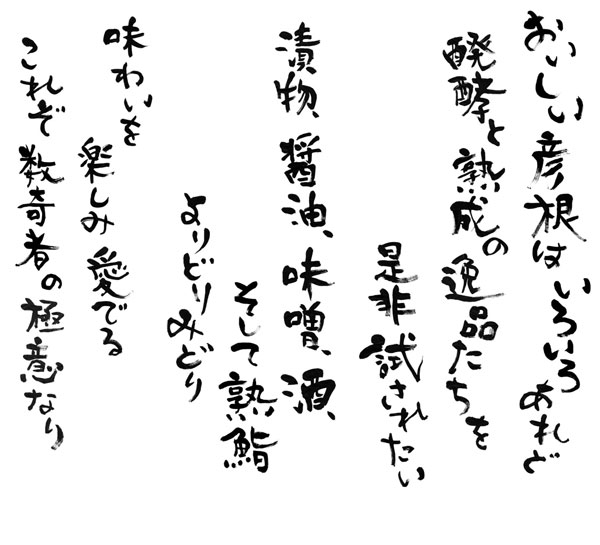 おいしい彦根はいろいろあれど
醗酵と熟成の逸品たちを
是非試されたい
漬物、醤油、味噌、酒、
そして熟鮨
よりどりみどり
味わいを
楽しみ愛でる
これぞ数奇者の極意なり